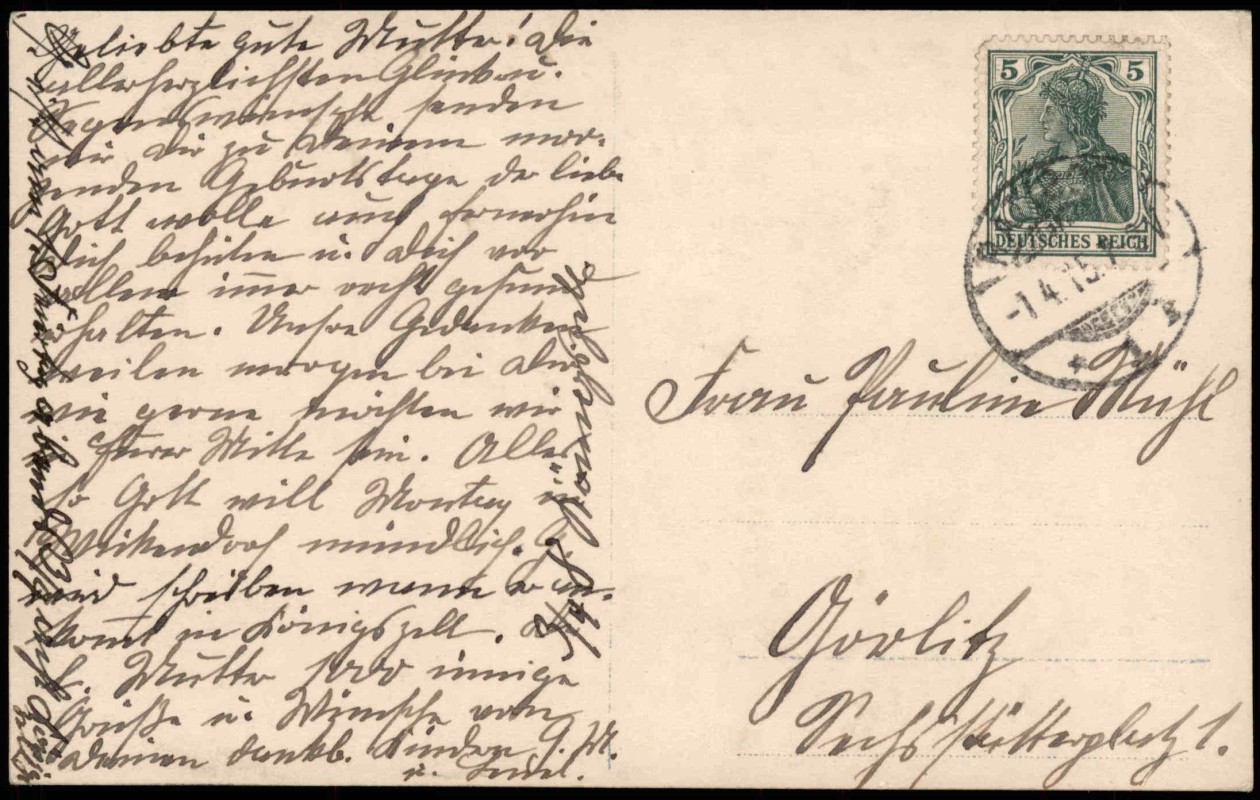 Geliebte gute Mutter! Die
allerherzlichsten Glück u.
Segenswünsche senden
wir Dir zu Deinem mor-
genden Geburtstage der liebe
Gott wolle auch fernerhin
Dich behüten u. Dich vor
allem immer recht gesund
halten. Unsre Gedanken
weilen morgen bei Dir,
wie gerne möchten wir
in Eurer Mitte sein. Alles
so Gott will Montag in
Weikendorf mündlich. G.
wird schreiben wann er an-
komt in Königszelt. Dir
l. Mutter 1000 innige
Grüße u. Wünsche von
Deinen dankb. Kindern G. M.
u. Enkel.
5 5
DEUTSCHES REICH
-1.4.15.
Frau Pauline Mühl
Görlitz
Sechsstätterplatz 1.